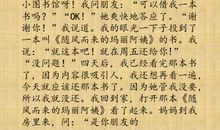 小图书馆呀！我问朋友：“可以借我一本
书吗？”“OK！”她爽快地答应了。“谢
谢你！”我说道。我的眼光一下子投到了
一本叫《随风而来的玛丽阿姨》的书。我
说：“就这本吧！就在周五还给你！”
“没问题！”四天后，我已经看完那本书
了，因为内容很吸引人，我还想再看一遍，
今天就应该还那本书了。因为她管我没要，
所以我就没还。我回到家，打开那本《随
风而来的玛丽阿姨》看了起来。妈妈到我
房里来，问：“是你朋友的